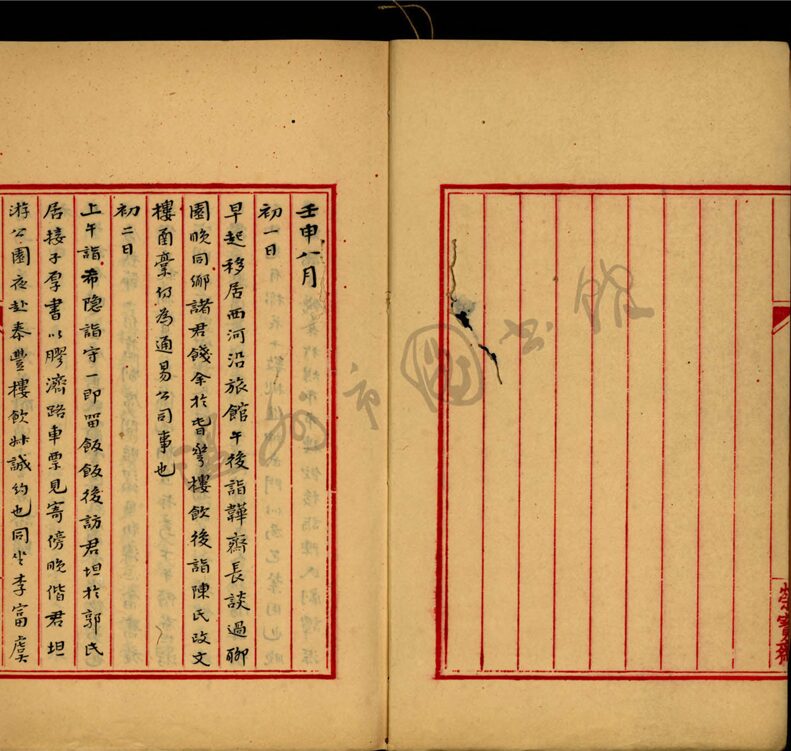 榮寶齋
壬申八月
初一日
早起移居西河沿旅館午後詣韡齋長談過聊
園晚同鄉諸君餞余於春華樓飲後詣陳氏改文
樓函稾仍為通易公司事也
初二日
上午詣希隱詣守一即留飯飯後訪君坦於郭氏
居接子厚書以膠濟路車票見寄傍晚偕君坦
游公園夜赴泰豐樓飲妹誠約也同坐李富虞
市圖書館